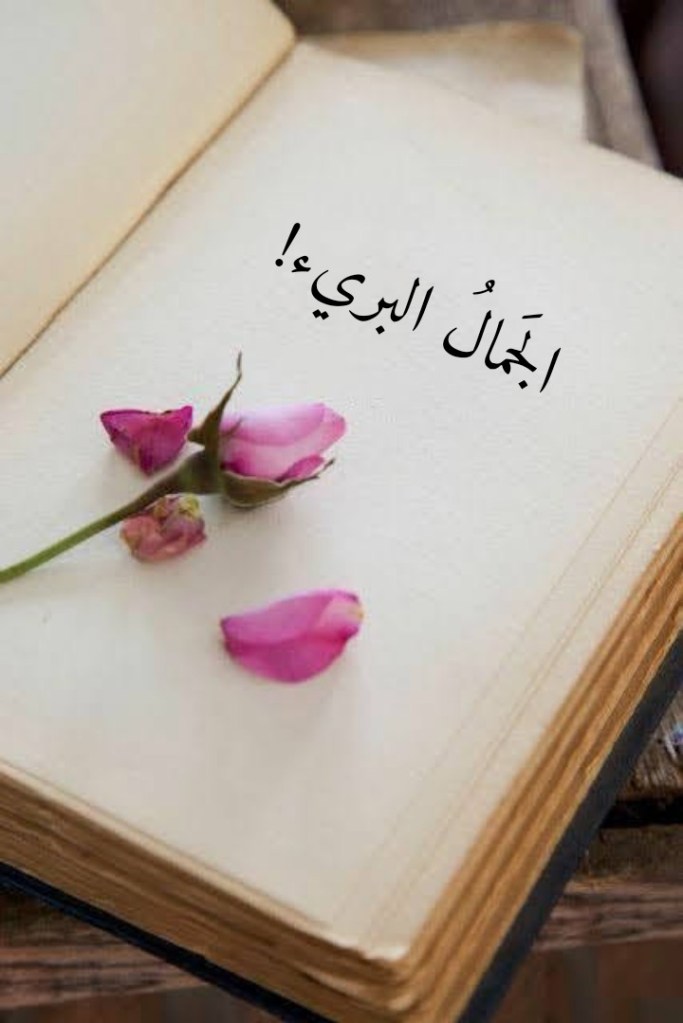 الجَمالُ البريء!